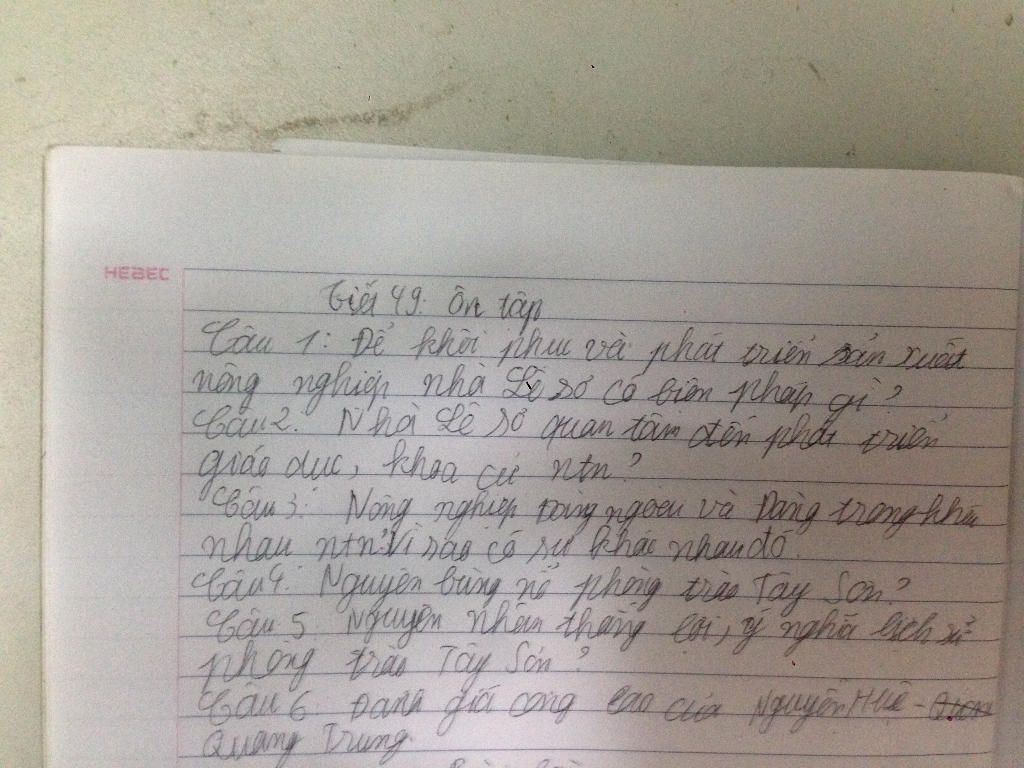 HEBEC
Tiết 49: Ôn tập
Câu 1: Để khôi phuc và phát triển sản xuất
nông nghiệp nhà Lê sơ có biên pháp gì?
Câu 2: Nhà Lê sơ quan tâm đến phát triển
giáo duc, khoa cử ntn?
Câu 3: Nông nghiêp Đàng ngoài và Đàng trong khác
nhau ntn? Vì sao có sư khác nhau đó.
Câu 4: Nguyên bùng nổ phong trào Tây Sơn?
Câu 5: Nguyên nhân thắng lơi, ý nghĩa lịch sử
phong trào Tây Sơn?
Câu 6: Đánh giá công lao của Nguyễn Huệ -
Quang Trung.